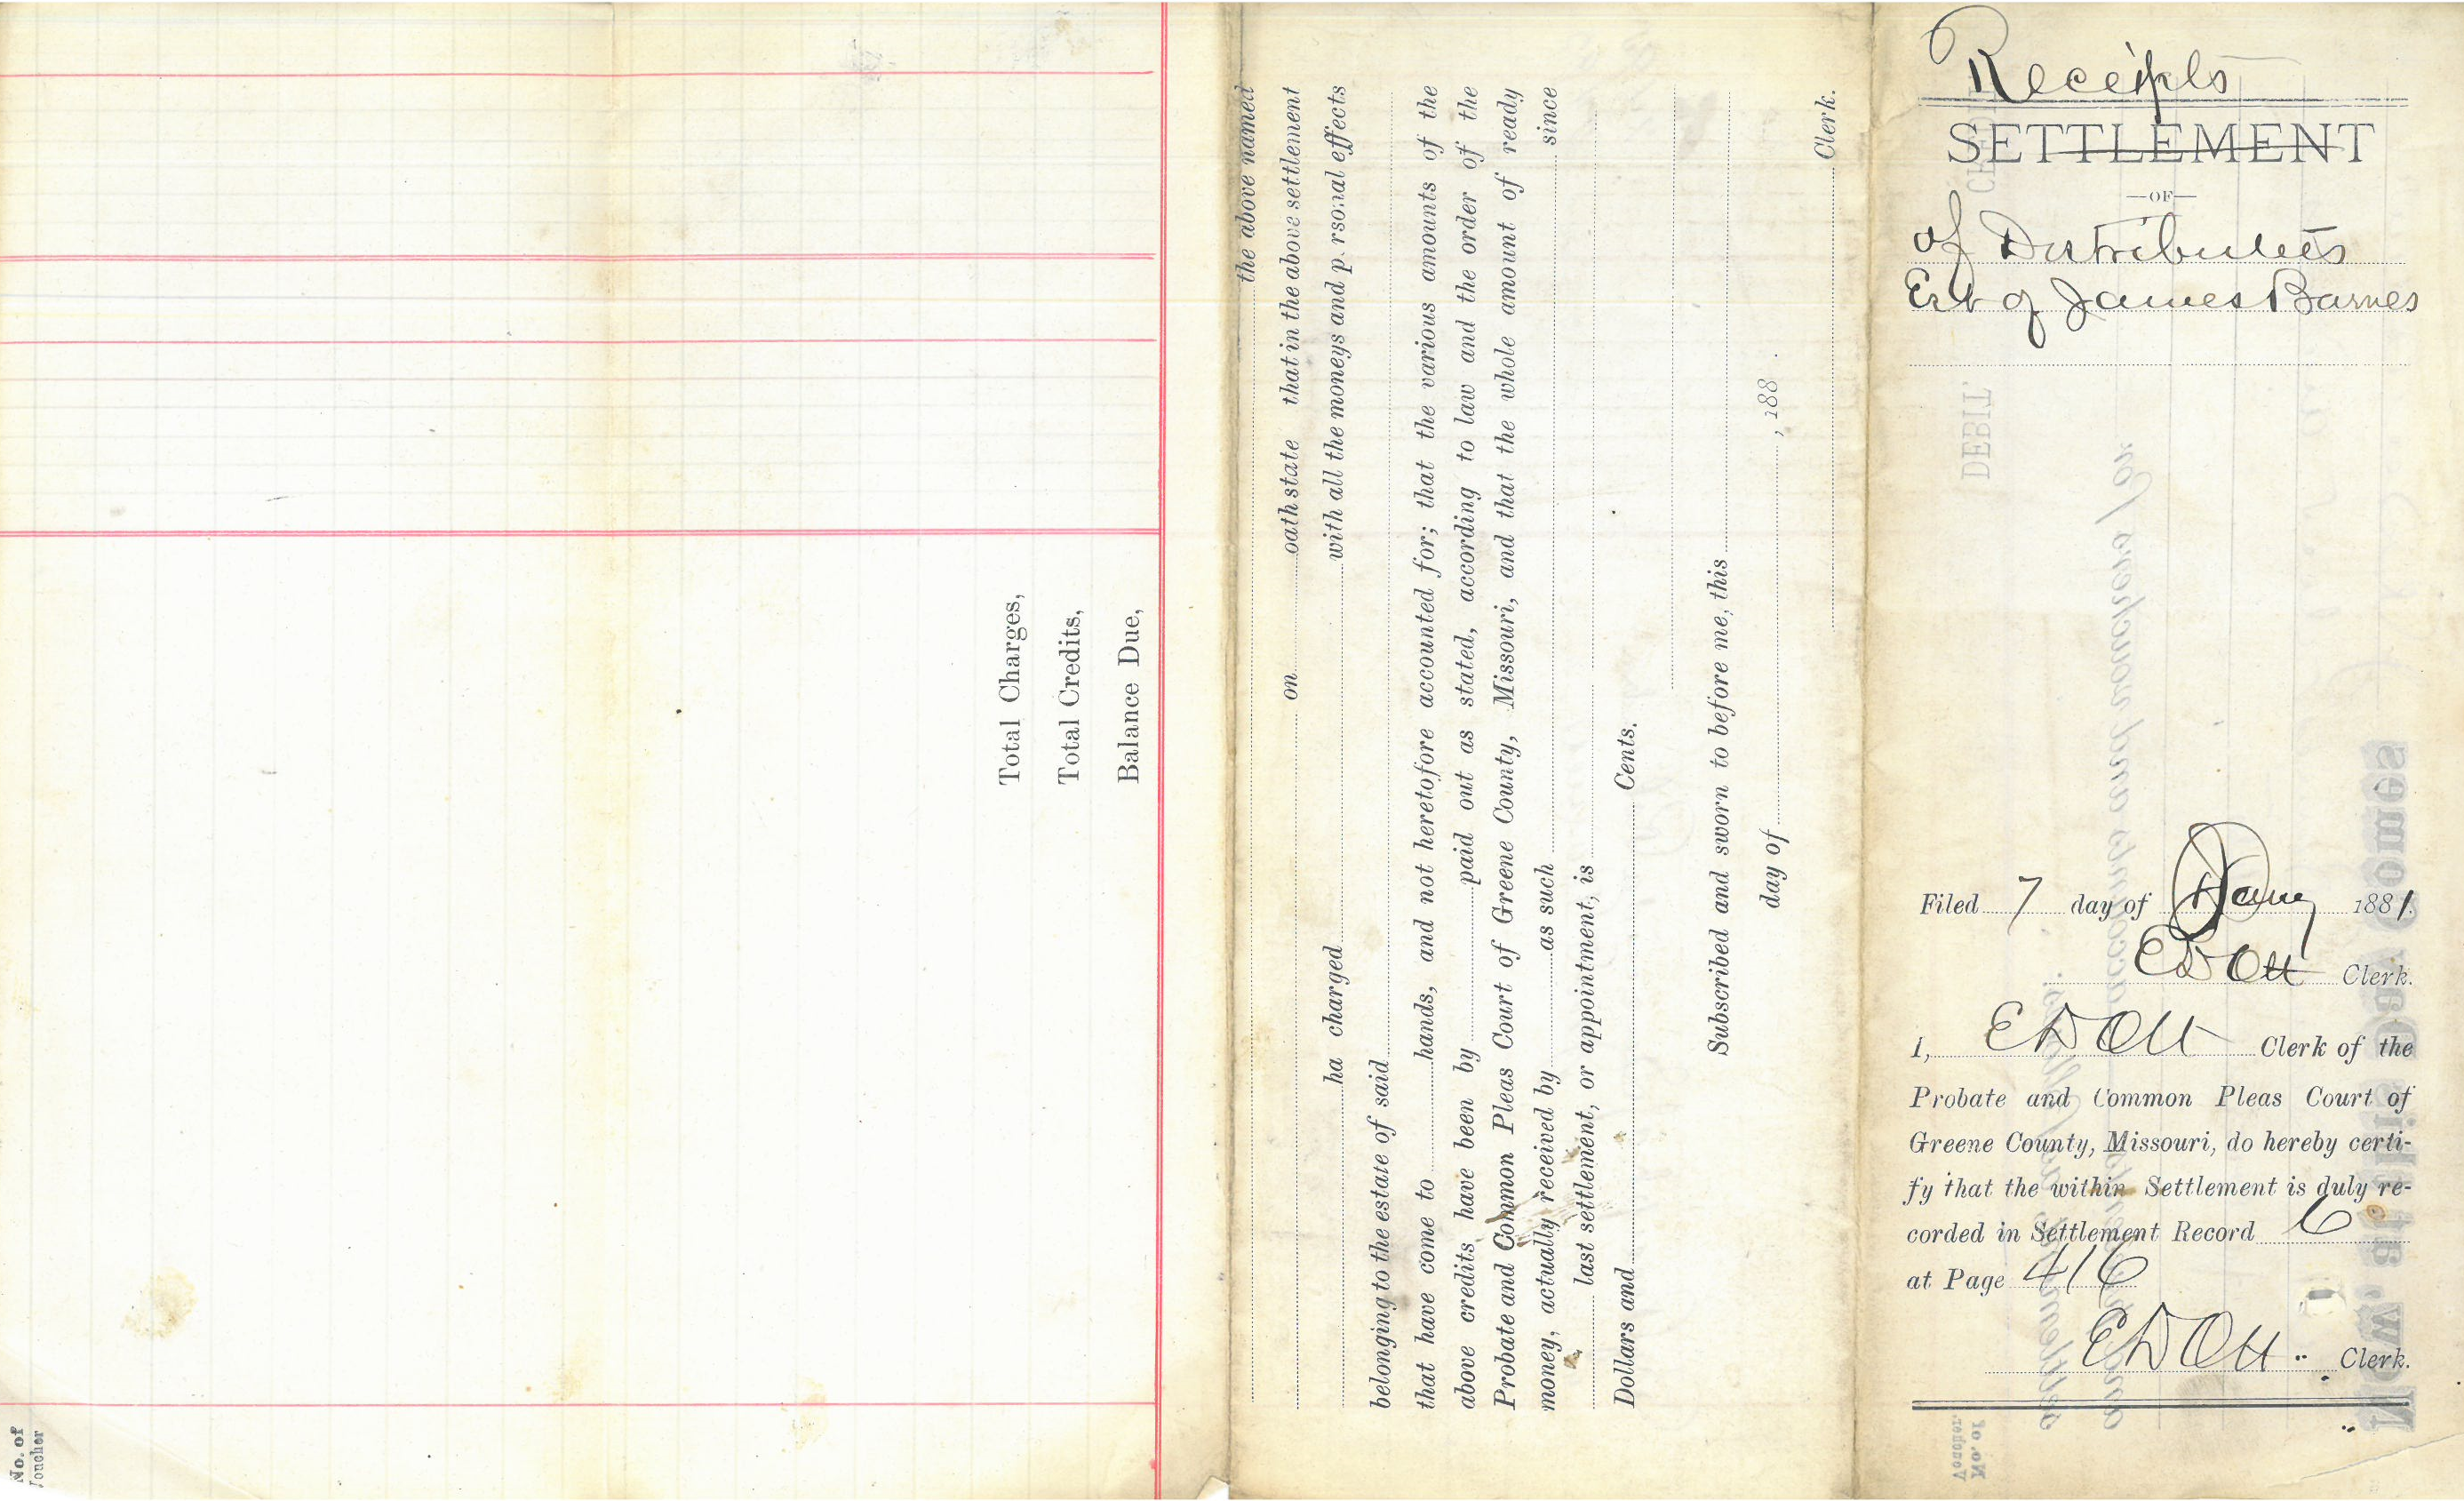 No. of
Voucher
Total Charges,
Total Credits,
Balance Due,
the above named
on oath state that in the above settlement
ha charged with all the moneys and p. rsonal effects
belonging to the estate of said
that have come to hands, and not heretofore accounted for; that the various amounts of the
above credits have been by paid out as stated, according to law and the order of the
Probate and Common Pleas Court of Greene County, Missouri, and that the whole amount of ready
money, actually received by as such since
last settlement, or appointment, is
Dollars and Cents.
Subscribed and sworn to before me, this
day of , 188 .
Clerk.
Receipts
SETTLEMENT
—OF—
of Distributees
Est of James Barnes
Filed 7 day of Jany 1881.
E D Ott Clerk.
I, E D Ott Clerk of the
Probate and Common Pleas Court of
Greene County, Missouri, do hereby certi-
fy that the within Settlement is duly re-
corded in Settlement Record 6
at Page 416
E D Ott Clerk.
DEBIT
CREDIT
Now at this day Comes
No. of
Voucher.